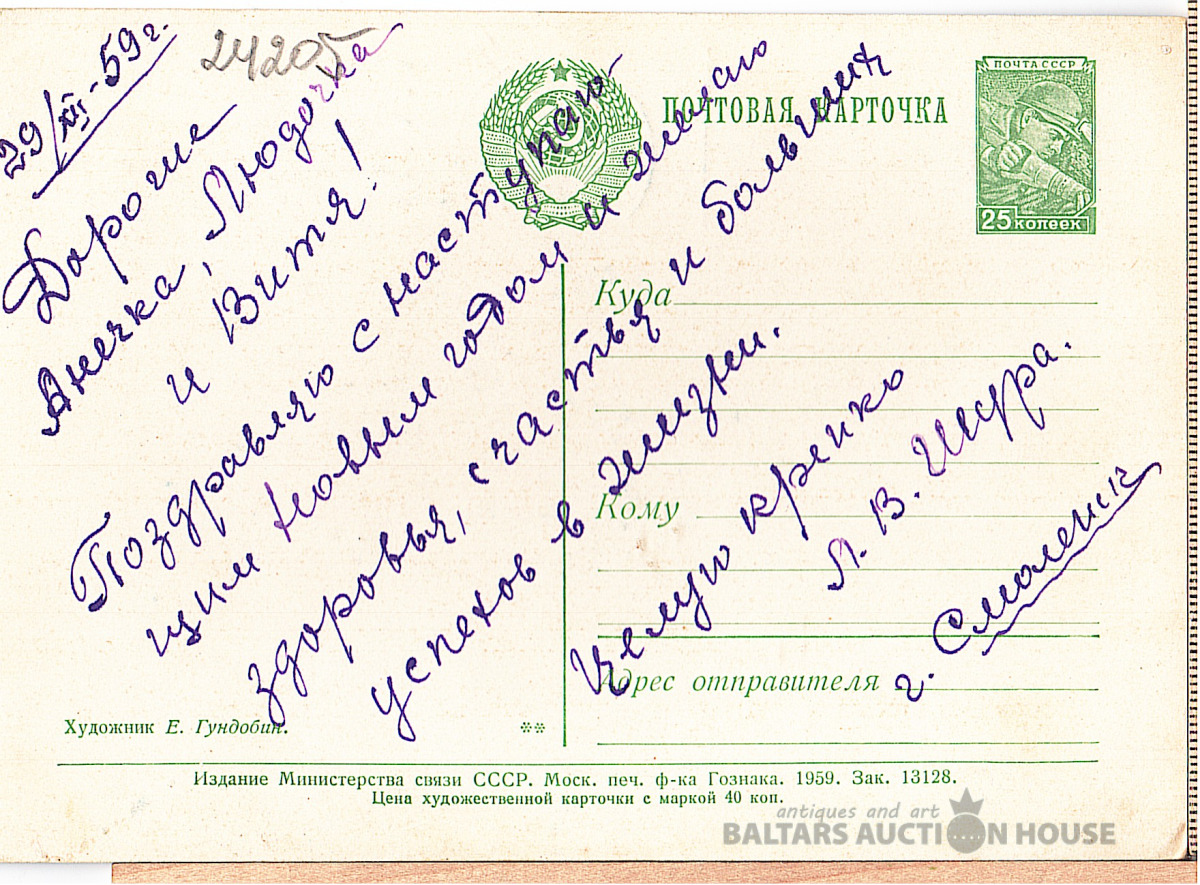 29/XII-59г.
2420
Дорогие
Анечка, Людочка
и Витя!
Поздравляю с наступаю-
щим Новым годом и желаю
здоровья, счастья и больших
успехов в жизни.
Целую крепко
Л. В. Шура.
г. Смоленск
ПОЧТА СССР
25 КОПЕЕК
ПОЧТОВАЯ КАРТОЧКА
Куда
Кому
Адрес отправителя
Художник Е. Гундобин.
Издание Министерства связи СССР. Моск. печ. ф-ка Гознака. 1959. Зак. 13128.
Цена художественной карточки с маркой 40 коп.
antiques and art
BALTARS AUCTION HOUSE